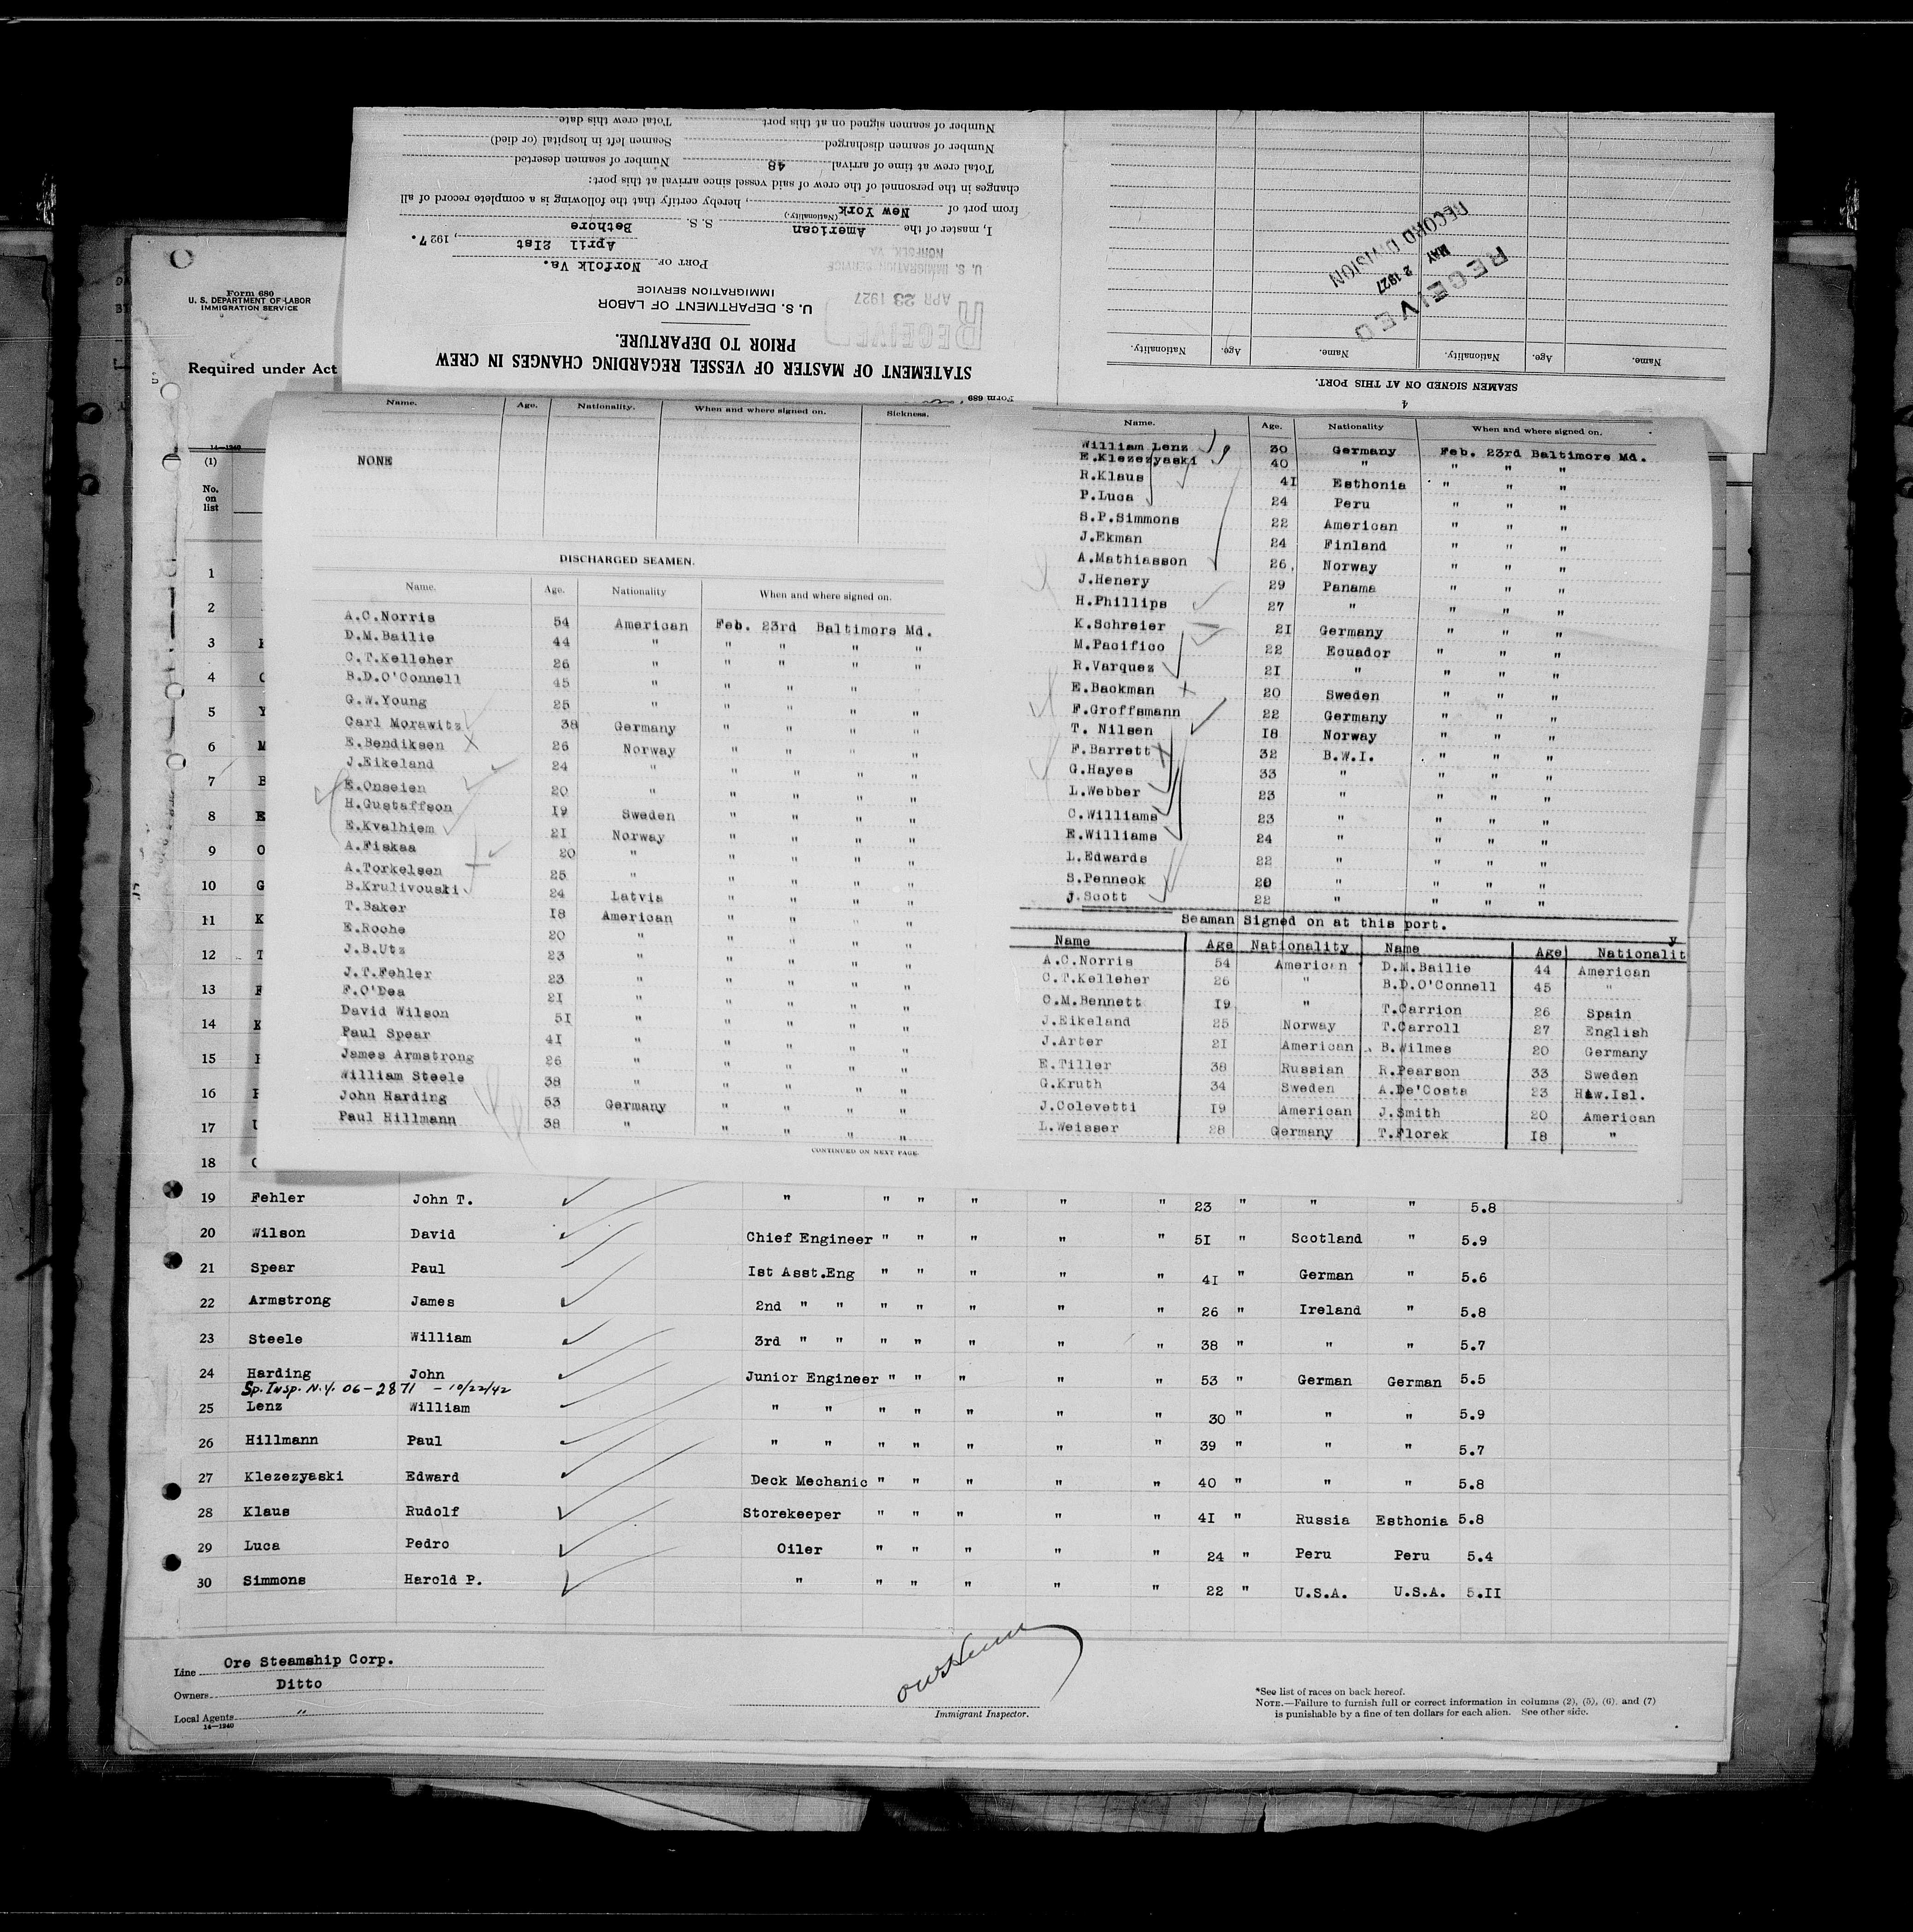 Total crew this date
Number of seamen signed on at this port
Seamen left in hospital (or died)
Number of seamen discharged
Number of seamen deserted
Total crew at time of arrival 48
changes in the personnel of the crew of said vessel since arrival at this port:
from port of New York, hereby certify that the following is a complete record of all
(Nationality)
I, master of the American S. S. Bethore
PORT OF Norfolk Va. April 21st, 1927.
U. S. IMMIGRATION SERVICE
NORFOLK, VA.
IMMIGRATION SERVICE
U. S. DEPARTMENT OF LABOR
RECEIVED
APR 23 1927
PRIOR TO DEPARTURE.
STATEMENT OF MASTER OF VESSEL REGARDING CHANGES IN CREW
Form 689
RECEIVED
MAY 2 1927
RECORD DIVISION
Name. Age. Nationality. Name. Age. Nationality.
SEAMEN SIGNED ON AT THIS PORT.
4
Form 680
U. S. DEPARTMENT OF LABOR
IMMIGRATION SERVICE
Required under Act
14—1240
(1)
No. on list
Name. Age. Nationality. When and where signed on. Sickness.
NONE
DISCHARGED SEAMEN.
Name. Age. Nationality When and where signed on.
A.C.Norris 54 American Feb. 23rd Baltimore Md.
D.M.Bailie 44 " " " " "
C.T.Kelleher 26 " " " " "
B.D.O'Connell 45 " " " "
G.W.Young 25 " " " " "
Carl Morawitz 38 Germany " " " "
E.Bendiksen 26 Norway " " " "
J.Eikeland 24 " " " " "
E.Onseien 20 " " " " "
H.Gustaffson 19 Sweden " " " "
E.Kvalhiem 21 Norway " " " "
A.Fiskaa 20 " " " " "
A.Torkelsen 25 " " " " "
B.Krulivouski 24 Latvia " " " "
T.Baker 18 American " " " "
E.Roche 20 " " " " "
J.B.Utz 23 " " " " "
J.T.Fehler 23 " " " " "
F.O'Dea 21 " " " " "
David Wilson 51 " " " " "
Paul Spear 41 " " " " "
James Armstrong 26 " " " " "
William Steele 38 " " " " "
John Harding 53 Germany " " " "
Paul Hillmann 38 " " " " "
CONTINUED ON NEXT PAGE.
Name. Age. Nationality When and where signed on.
William Lenz 30 Germany Feb. 23rd Baltimore Md.
E.Klezezyaski 40 " " " "
R.Klaus 41 Esthonia " " "
P.Luca 24 Peru " " "
S.P.Simmons 22 American " " "
J.Ekman 24 Finland " " "
A.Mathiasson 26, Norway " " "
J.Henery 29 Panama " " "
H.Phillips 27 " " " "
K.Schreier 21 Germany " " "
M.Pacifico 22 Ecuador " " "
R.Varquez 21 " " " "
E.Backman 20 Sweden " " "
F.Groffsmann 22 Germany " " "
T. Nilsen 18 Norway " " "
F.Barrett 32 B.W.I. " " "
G.Hayes 33 " " " "
L.Webber 23 " " " "
C.Williams 23 " " " "
E.Williams 24 " " " "
L.Edwards 22 " " " "
S.Penneck 20 " " " "
J.Scott 22 " " " "
Seaman Signed on at this port.
Name Age Nationality Name Age Nationality
A.C.Norris 54 American D.M.Bailie 44 American
C.T.Kelleher 26 " B.D.O'Connell 45 "
C.M.Bennett 19 " T.Carrion 26 Spain
J.Eikeland 25 Norway T.Carroll 27 English
J.Arter 21 American B.Wilmes 20 Germany
E.Tiller 38 Russian R.Pearson 33 Sweden
G.Kruth 34 Sweden A.De'Costa 23 Haw.Isl.
J.Colevetti 19 American J.Smith 20 American
L.Weisser 28 Germany T.Florek 18 "
1
2
3
4
5 Y
6 M
7 B
8 E
9 O
10 G
11 K
12 T
13 F
14 K
15
16
17
18
19 Fehler John T. " " " " " " 23 " " " 5.8
20 Wilson David Chief Engineer " " " " " 51 " Scotland " 5.9
21 Spear Paul 1st Asst.Eng " " " " " 41 " German " 5.6
22 Armstrong James 2nd " " " " " " " 26 " Ireland " 5.8
23 Steele William 3rd " " " " " " " 38 " " " 5.7
24 Harding John Junior Engineer " " " " " 53 " German German 5.5
Sp. Insp. N.Y. 06-2871 - 10/22/42
25 Lenz William " " " " " " " 30 " " " 5.9
26 Hillmann Paul " " " " " " " 39 " " " 5.7
27 Klezezyaski Edward Deck Mechanic " " " " " 40 " " " 5.8
28 Klaus Rudolf Storekeeper " " " " " 41 " Russia Esthonia 5.8
29 Luca Pedro Oiler " " " " " 24 " Peru Peru 5.4
30 Simmons Harold P. " " " " " " 22 " U.S.A. U.S.A. 5.11
Line Ore Steamship Corp.
Owners Ditto
Local Agents "
14—1240
Immigrant Inspector.
*See list of races on back hereof.
NOTE.—Failure to furnish full or correct information in columns (2), (5), (6), and (7)
is punishable by a fine of ten dollars for each alien. See other side.